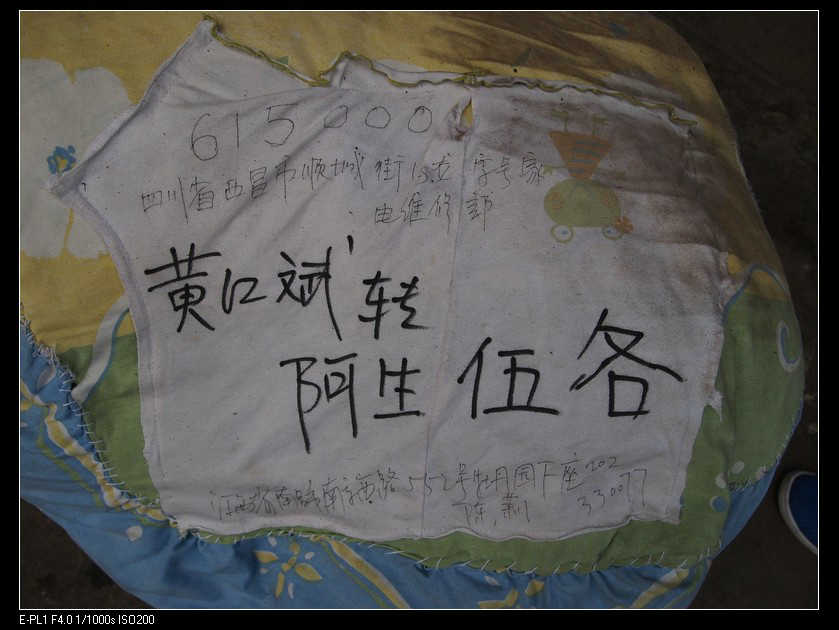 615000
四川省西昌市顺城街13号 字号家
电维修部
黄江斌转
阿生伍各
江西省南昌 南 路552号牡丹园 座202
陈 330077
E-PL1 F4.0 1/1000s ISO200